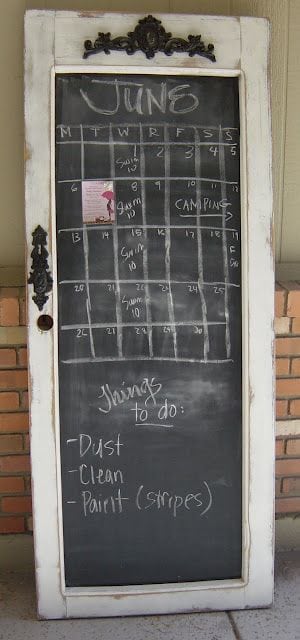 JUNE
M T W R F S S
1 2 3 4 5
Swim 10
6 8 9 10 11 12
Swim 10 CAMPING
13 14 15 16 17 18 19
Swim 10
20 21 22 23 24 25
Swim 10
26 27 28 29 30
Things
to do:
-Dust
-Clean
-Paint (stripes)